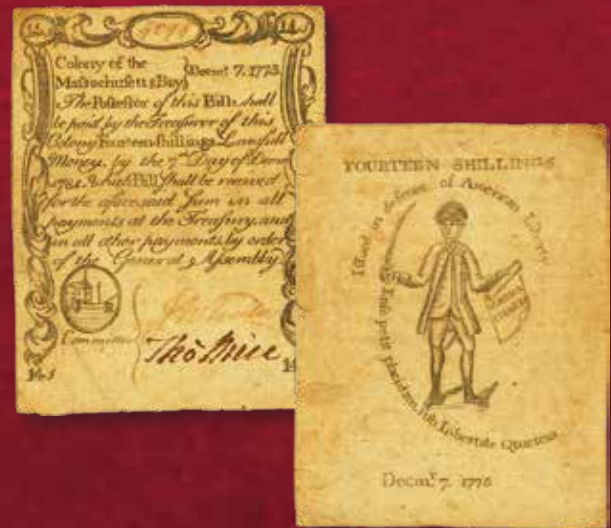 14s 14s
Colony of the
Massachusetts Bay } Decemr 7. 1775
The Possessor of this Bill shall
be paid by the Treasurer of this
Colony Fourteen shillings Lawfull
Money, by the 7th Day of Decmr
1781 which Bill shall be received
for the aforesaid Sum in all
payments at the Treasury, and
in all other payments by order
of the General Assembly
Committee
Tho
14s
FOURTEEN SHILLINGS
Issued in defence of American Liberty
Ense petit placidam, sub Libertate Quietem
Decmr 7. 1775